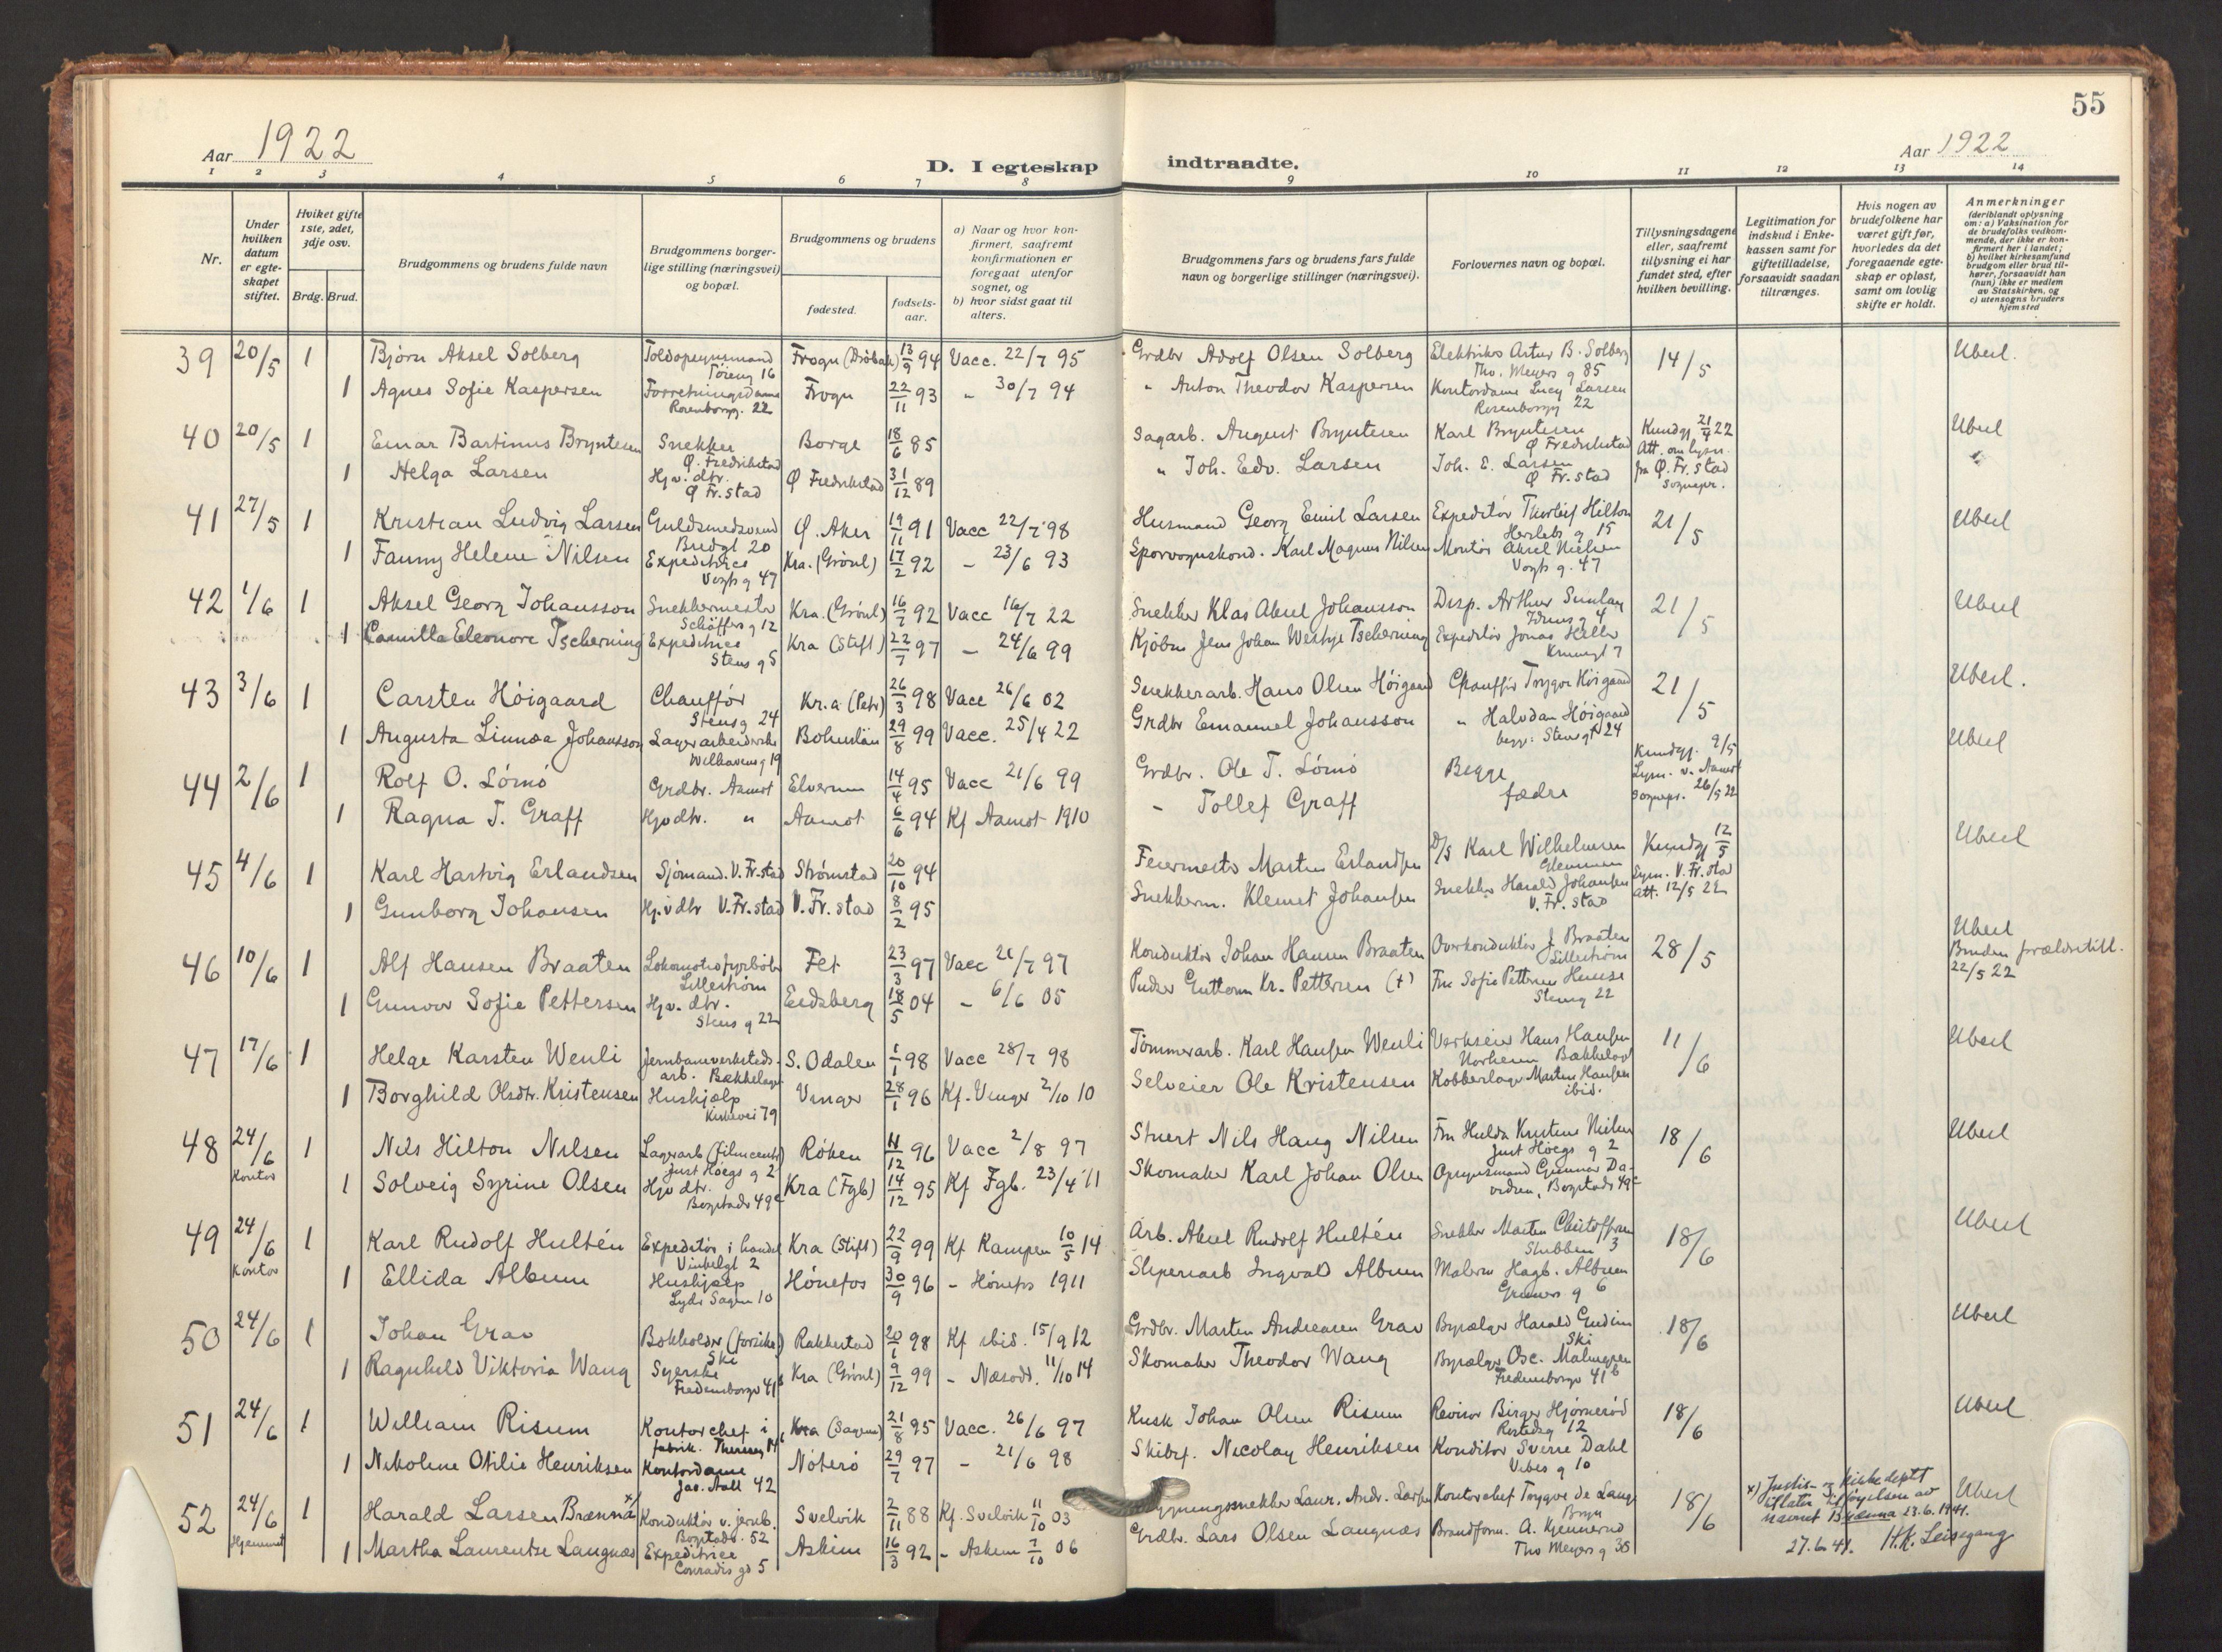 55
Aar 1922
D. I egteskap indtraadte.
Aar 1922
1 2 3 4 5 6 7 8 9 10 11 12 13 14
Nr.
Under hvilken datum er egteskapet stiftet.
Hviket gifte 1ste, 2det, 3dje osv.
Brdg. Brud.
Brudgommens og brudens fulde navn
Brudgommens borgerlige stilling (næringsvei) og bopæl.
Brudgommens og brudens
fødested.
fødselsaar.
a) Naar og hvor konfirmert, saafremt konfirmationen er foregaat utenfor sognet, og
b) hvor sidst gaat til alters.
Brudgommens fars og brudens fars fulde navn og borgerlige stillinger (næringsvei).
Forlovernes navn og bopæl.
Tillysningsdagene eller, saafremt tillysning ei har fundet sted, efter hvilken bevilling.
Legitimation for indskud i Enkekassen samt for giftetilladelse, forsaavidt saadan tiltrænges.
Hvis nogen av brudefolkene har været gift før, hvorledes da det foregaaende egteskap er opløst, samt om lovlig skifte er holdt.
Anmerkninger
(deriblandt oplysning om: a) Vaksination for de brudefolks vedkommende, der ikke er konfirmert her i landet; b) hvilket kirkesamfund brudgom eller brud tilhører, forsaavidt han (hun) ikke er medlem av Statskirken, og c) utensogns bruders hjemsted
39 20/5 1 Bjørn Aksel Solberg Toldopsynsmand Tøieng 16 Frogn (Drøbak) 13/9 94 Vacc. 22/7 95 Grdbr Adolf Olsen Solberg Elektriker Artur B. Solberg Tho. Meyers g 85 14/5 Uberl.
1 Agnes Sofie Kaspersen Forretningsdame Rosenborgg. 22 Frogn 22/11 93 " 30/7 94 " Anton Theodor Kaspersen Kontordame Lucy Larsen Rosenborgg 22
40 20/5 1 Einar Bartinus Bryntesen Snekker Ø. Fredrikstad Borge 18/6 85 Sagarb. August Bryntesen Karl Bryntesen Ø Fredrikstad Kundgj 21/4 22 Att. om lysn. fra Ø. Fr.stad sognepr. Uberl
1 Helga Larsen Hjv. dtr. Ø Fr.stad Ø Fredrikstad 31/12 89 " Joh. Edv. Larsen Joh. E. Larsen Ø Fr. stad
41 27/5 1 Kristian Ludvig Larsen Guldsmedsvend Bredgt 20 Ø. Aker 19/11 91 Vacc 22/7 98 Husmand Georg Emil Larsen Expeditør Thorleif Hilton Herslebs g 15 21/5 Uberl
1 Fanny Helene Nilsen Expeditrice Vogts g 47 Kra. (Grønl) 17/2 92 - 23/6 93 Sporvognskond. Karl Magnus Nilsen Montør Aksel Nielsen Vogts g. 47
42 1/6 1 Aksel Georg Johansson Snekkermester Schäffers g 12 Kra. (Grønl) 16/7 92 Vacc 16/7 22 Snekker Klas Aksel Johansson Disp. Arthur 21/5 Uberl
1 Camilla Eleonore Tscherning Expeditrice Stens g 5 Kra (Stift) 22/7 97 - 24/6 99 Kjøbm Jens Johan Westye Tscherning Expeditør Jonas Heller
43 3/6 1 Carsten Høigaard Chauffør Stensg 24 Kr.a (Petr) 26/3 98 Vacc 26/6 02 Snekkerarb. Hans Olsen Høigaard Chauffør Trygve Høigaard 21/5 Uberl.
1 Augusta Linnea Johansson Lagerarbeiderske Wilhavens g 19 Bohuslän 29/8 99 Vacc. 25/4 22 Grdbr Emanuel Johansson " Halvdan Høigaard begge: Stensgt 24
44 2/6 1 Rolf O. Lømo Grdbr. Aamot Elverum 14/4 95 Vacc 21/6 99 Grdbr. Ole T. Lømo Begge fædre Kundgj. 9/5 Lysn. v. Aamot sognepr. 26/5 22 Uberl
1 Ragna T. Graff Hjv dtr. " Aamot 6/6 94 Kf Aamot 1910 - Tollef Graff
45 4/6 1 Karl Hartvig Erlandsen Sjømand. V. Fr. stad Strømstad 20/10 94 Feiermester Martin Erlandsen D/S Karl Wilhelmsen Glemmen Kundgj 12/5 Lysn. V. Fr. stad att. 12/5 22 Uberl
1 Gunborg Johansen Hj.v dtr V. Fr. stad V. Fr. stad 8/2 95 Snekkerm. Klemet Johansen Snekker Harald Johansen V. Fr. stad
46 10/6 1 Alf Hansen Braaten Lokomotivfyrbøter Lillestrøm Fet 23/3 97 Vacc 21/7 97 Konduktør Johan Hansen Braaten Overkonduktør J. Braaten Lillestrøm 28/5 Uberl Bruden forældretill. 22/5 22
1 Gunvor Sofie Pettersen Hjv. dtr. Stens g 22 Eidsberg 18/5 04 - 6/6 05 Pudser Guttorm Kr. Pettersen (+) Fru Sofie Pettersen Stensg 22
47 17/6 1 Helge Karsten Wenli Jernbaneverkstedsarb. Bækkelaget S. Odalen 1/1 98 Vacc 28/7 98 Tømmerarb. Karl Hansen Wenli Verkseier Hans Hansen Norheim Bækkelaget 11/6 Uberl
1 Borghild Olsdtr. Kristensen Hushjælp Kirkevei 79 Vinger 28/1 96 Kf. Vinger 2/10 10 Selveier Ole Kristensen Kobberslager Martin Hansen ibid.
48 24/6 Kontor 1 Nils Hilton Nilsen Lagerarb (filmcentr) Just Høegs g 2 Røken 11/12 96 Vacc 2/8 97 Stuert Nils Haug Nilsen Fru Hulda Kristine Nielsen Just Høegs g 2 18/6 Uberl
1 Solveig Syrine Olsen Hjv dtr. Bogstads 49c Kra (Fgb) 14/12 95 Kf Fgb. 23/4 11 Skomaker Karl Johan Olsen Opsynsmand Gunnar Davidsen, Bogstads 49c
49 24/6 Kontor 1 Karl Rudolf Hultén Expeditør i handel Vinkelgt 2 Kra (Stift) 22/9 99 Kf Kampen 10/5 14 Arb. Aksel Rudolf Hultén Snekker Martin Christoffersen Stubben 3 18/6 Uberl
1 Ellida Album Hushjælp Lyder Sagen 10 Hønefos 30/9 96 - Hønefos 1911 Sliperiarb Ingvald Album Malerm Hagb. Album g 6
50 24/6 1 Johan Grav Bokholder (forsikr) Ski Rakkestad 20/1 98 Kf ibid. 15/9 12 Grdbr. Marten Andreasen Grav Bysælger Harald Gudim Ski 18/6 Uberl
1 Ragnhild Viktoria Wang Syerske Fredensborgv 41b Kra (Grønl) 9/12 99 - Næsodd. 11/10 14 Skomaker Theodor Wang Bysælger Osc. Malmgren Fredensborgv 41b
51 24/6 1 William Risum Kontorchef i fabrik. Theresesg 14 Kra (Sagene) 21/8 95 Vacc. 26/6 97 Kusk Johan Olsen Risum Revisor Birger Hjørnerød Rostedsg 12 18/6 Uberl
1 Nikoline Otilie Henriksen Kontordame Jac. Aall 42 Nøterø 29/7 97 - 21/6 98 Skibsf. Nicolay Henriksen Konditor Sverre Dahl Vibes g 10
52 24/6 Hjemmet 1 Harald Larsen Brænna x) Konduktør v. jernb. Bogstadv. 52 Svelvik 2/11 88 Kf. Svelvik 11/10 03 Bygningssnekker Laur. Andr. Larsen Kontorchef Trygve de Lange Bryn 18/6 x) Justis- og kirkedeptt tillater tilføyelsen av navnet Brænna 23.6.1941. 27.6.41. H.K. Leisegang Uberl
1 Martha Laurentze Langnæs Expeditrice Conradis gd 5 Askim 16/3 92 - Askim 7/10 06 Grdbr. Lars Olsen Langnæs Brandform. A. Kjennerud Tho Meyers g 36